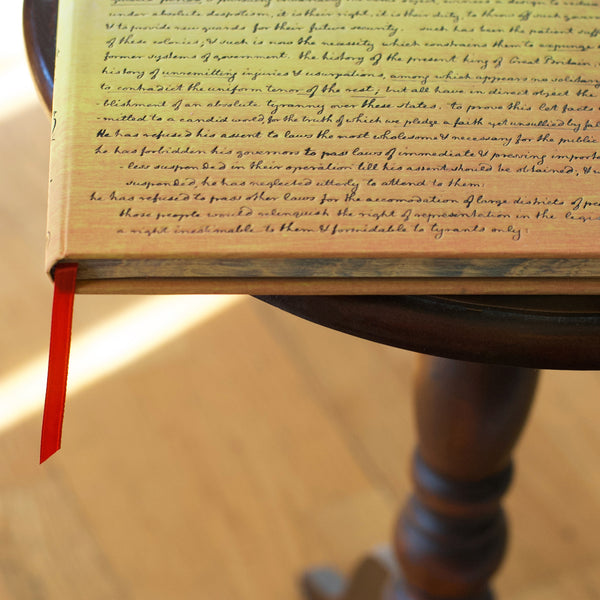 under absolute despotism, it is their right, it is their duty, to throw off such
& to provide new guards for their future security. such has been the patient
of these colonies; & such is now the necessity which constrains them to expunge
former systems of government. the history of the present king of Great Britain,
history of unremitting injuries & usurpations, among which appears no solitary
to contradict the uniform tenor of the rest, but all have in direct object the
-blishment of an absolute tyranny over these states. to prove this let facts
-mitted to a candid world, for the truth of which we pledge a faith yet unsullied by
He has refused his assent to laws the most wholesome & necessary for the public
he has forbidden his governors to pass laws of immediate & pressing
- less suspended in their operation till his assent should be obtained; &
suspended, he has neglected utterly to attend to them.
he has refused to pass other laws for the accomodation of large districts of
those people would relinquish the right of representation in the
a right inestimable to them & formidable to tyrants only: